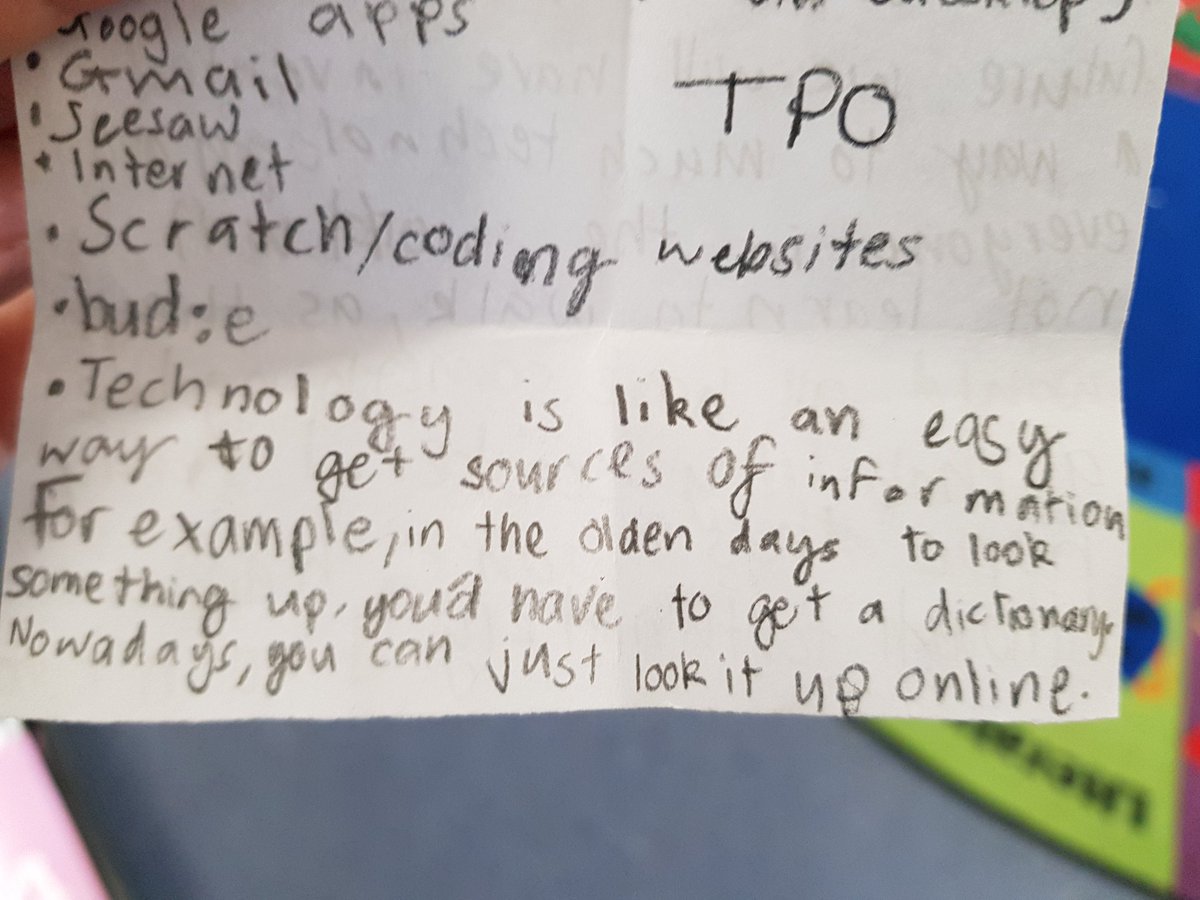 Google apps
• Gmail
TPO
• Seesaw
• Internet
• Scratch/coding websites
• bud:e
• Technology is like an easy
way to get sources of information
For example, in the olden days to look
something up, you'd have to get a dictionary.
Nowadays, you can just look it up online.